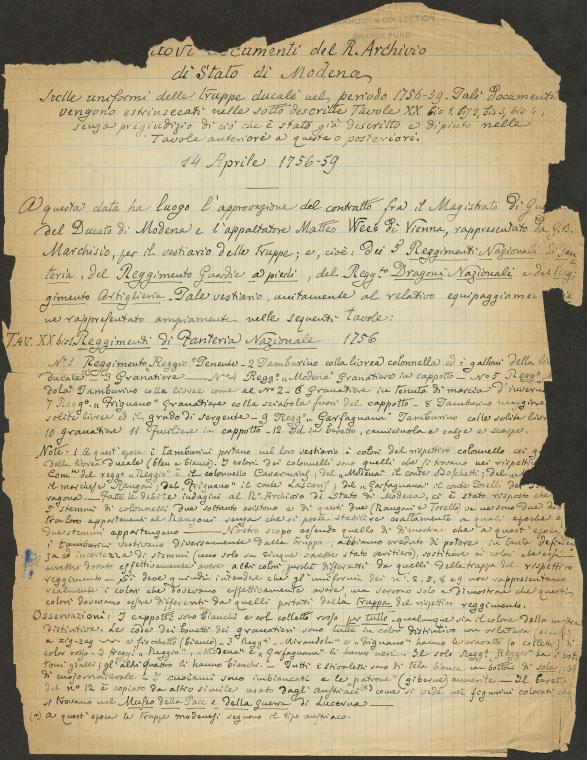 COLLECTION
DRAPER FUND
documenti del R. Archivio
di Stato di Modena
Sulle uniformi delle truppe ducali nel periodo 1756-59. Tali documenti
vengono estrinsecati nelle sotto descritte Tavole XX bis 1, bis 2, bis 3, bis 4,
senza pregiudizio di ciò che è stato già descritto e dipinto nelle
Tavole anteriori a questa o posteriori.
14 Aprile 1756-59
A questa data ha luogo l'approvazione del contratto fra il Magistrato di
del Ducato di Modena e l'appaltatore Matteo di Vienna, rappresentato da G.B.
Marchisio, per il vestiario delle truppe; e, cioè: dei 5 Reggimenti Nazionali di
teria, del Reggimento Guardie a piedi, del Regg.to Dragoni Nazionali e del
gimento Artiglieria. Tale vestiario, unitamente al relativo
ne rappresentato ampiamente nelle seguenti tavole:
TAV. XX bis 1. Reggimenti di Fanteria Nazionale 1756
N.º 1 Reggimento Reggio: Tenente - 2 Tamburino colla livrea colonnella ed i galloni della
ducale - 3 Granatiere - Nº 4 Regg.º "Modena" Granatiere in cappotto - nº 5 Regg.º
Tamburino colla livrea come al nº 2 - 6 Granatiere in tenuta di marcia d'inverno
7 Regg.º "Frignano" Granatiere colla sciabola fuori del cappotto - 8 Tamburo maggiore
solite livree ed il grado di sergente - 9 Regg.º "Garfagnana" Tamburino colle solite
10 granatiere 11 Fuciliere in cappotto - 12 Id. in beretto, camiciuola e calze e scarpe.
Note: 1º a quest'epoca i tamburini portano nel loro vestiario i colori del rispettivo colonnello
della livrea ducale (bleu e bianco). I colori dei colonnelli sono quelli che si trovano nei
Regg.º "Reggio" è il colonnello del "Modena" il conte
il marchese Rangoni, del "Frignano" il conte del "Garfagnana" il conte Torelli
Fatte le debite indagini al R.º Archivio di Stato di Modena, ci è stato risposto che
5 stemmi di colonnelli due soltanto esistono e di questi due (Rangoni e Torelli) ve ne sono due
tra loro appartenenti al Rangoni senza che si possa stabilire esattamente a quali epoche
due stemmi appartengano. - Nostro scopo essendo quello di dimostrare che a quest'epoca
i tamburini vestivano diversamente dalla truppa, abbiamo creduto di potere, in tanta
ed incertezza di stemmi (uno solo su cinque essere stato veritiero), sostituire ai colori che
dovuto effettivamente avere, altri colori purchè differenti da quelli della truppa del rispettivo
reggimento - Si deve quindi intendere che gl'uniformi dei nº 1, 2, 5, 8 e 9 non rappresentano
realmente i colori che dovevano effettivamente avere ma servono solo a dimostrare che questi
colori dovevano essere differenti da quelli portati dalla truppa del rispettivo reggimento.
Osservazioni: I cappotti sono bianchi e col colletto rosso per tutti qualunque sia il colore della mostra
distintiva. Le code dei bonetti dei granatieri sono tutte in color distintivo con orlatura
a zig zag e con fiocchetto bianchi. I Regg. "Mirandola" e "Frignano" hanno le cravatte (o colletti) di
color rosso. I Regg. "Reggio" "Modena" e "Garfagnana" li hanno neri. - Il solo Regg. Reggio ha i bot-
toni gialli; gl'altri quattro li hanno bianchi. - Tutti i stivaletti sono di tela bianca con bottoni di
di naturale - I cuoiami sono imbiancati e le "patrone" (giberne) annerite - Il beretto
del nº 12 è copiato da altro simile usato dagli Austriaci (*) come si vede nei figurini colorati che
si trovano nel Museo della Pace e della Guerra di Lucerna -
(*) a quest'epoca le truppe modenesi seguono il tipo austriaco.